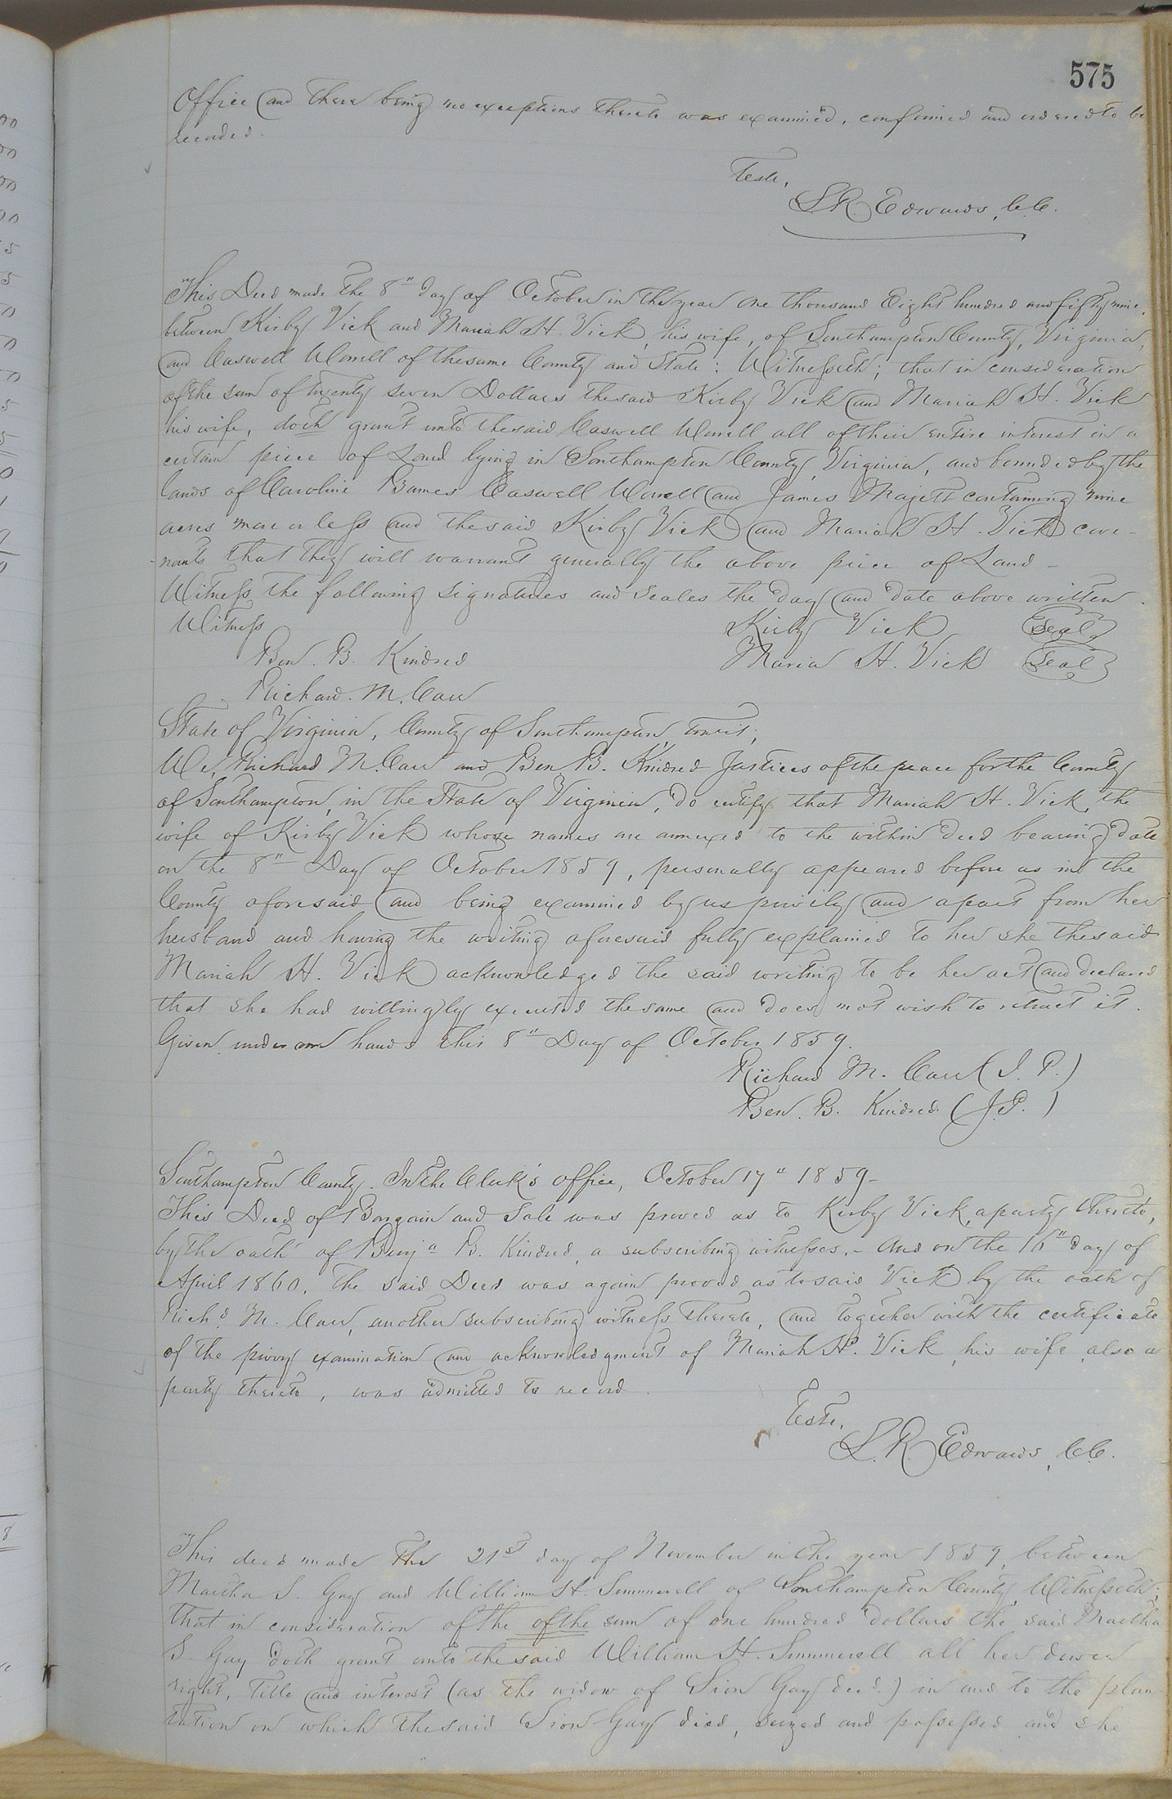 575
Office and there being no exceptions thereto was examined, confirmed and ordered to be
recorded.
Teste,
L R Edwards, C.C.
This Deed made the 8" day of October in the year one thousand Eight hundred and fifty nine,
between Kirby Vick and Mariah H. Vick, his wife, of Southampton County, Virginia,
and Caswell Worrell of the same County and State: Witnesseth; that in consideration
of the sum of twenty seven Dollars the said Kirby Vick and Mariah H. Vick
his wife, doth grant unto the said Caswell Worrell all of their entire interest in a
certain piece of Land lying in Southampton County, Virginia, and bounded by the
lands of Caroline Barnes Caswell Worrell and James Majett containing nine
acres more or less and the said Kirby Vick and Mariah H. Vick cove-
-nants that they will warrant generally the above piece of Land -
Witness the following signatures and seales the day and date above written.
Witness Kirby Vick Seal
Ben. B. Kindred Maria H. Vick Seal
Richard. M. Carr
State of Virginia, County of Southampton, towit;
We, Richard M. Carr and Ben B. Kindred Justices of the peace for the County
of Southampton, in the State of Virginia, do certify that Mariah H. Vick, the
wife of Kirby Vick whose names are annexed to the within deed bearing date
on the 8" Day of October 1859, personally appeared before us in the
County aforesaid and being examined by us privily and apart from her
husband and having the writing aforesaid fully explained to her she the said
Mariah H. Vick acknowledged the said writing to be her act and declared
that she had willingly executed the same and does not wish to retract it.
Given under our hands this 8" Day of October 1859.
Richard M. Carr (J. P.)
Ben. B. Kindred (J.P.)
Southampton County. In the Clerk's office, October 17" 1859-
This Deed of Bargain and Sale was proved as to Kirby Vick, a party thereto,
by the oath of Benja B. Kindred, a subscribing witnesses.- And on the 16" day of
April 1860. The said Deed was again proved as to said Vick by the oath of
Richd M. Carr, another subscribing witness thereto, and together with the certificate
of the privy examination and acknowledgment of Mariah H. Vick, his wife also a
party thereto, was admitted to record.
Teste,
L. R. Edwards, C.C.
This deed made the 21st day of November in the year 1859, between
Martha S. Gay and William H. Summerell of Southampton County, Witnesseth:
that in consideration of the of the sum of one hundred dollars the said Martha
S. Gay doth grant unto the said William H. Summerell all her dower
right, title and interest (as the widow of Sion Gay decd.) in and to the plan
tation on which the said Sion Gay died, seized and possessed and she